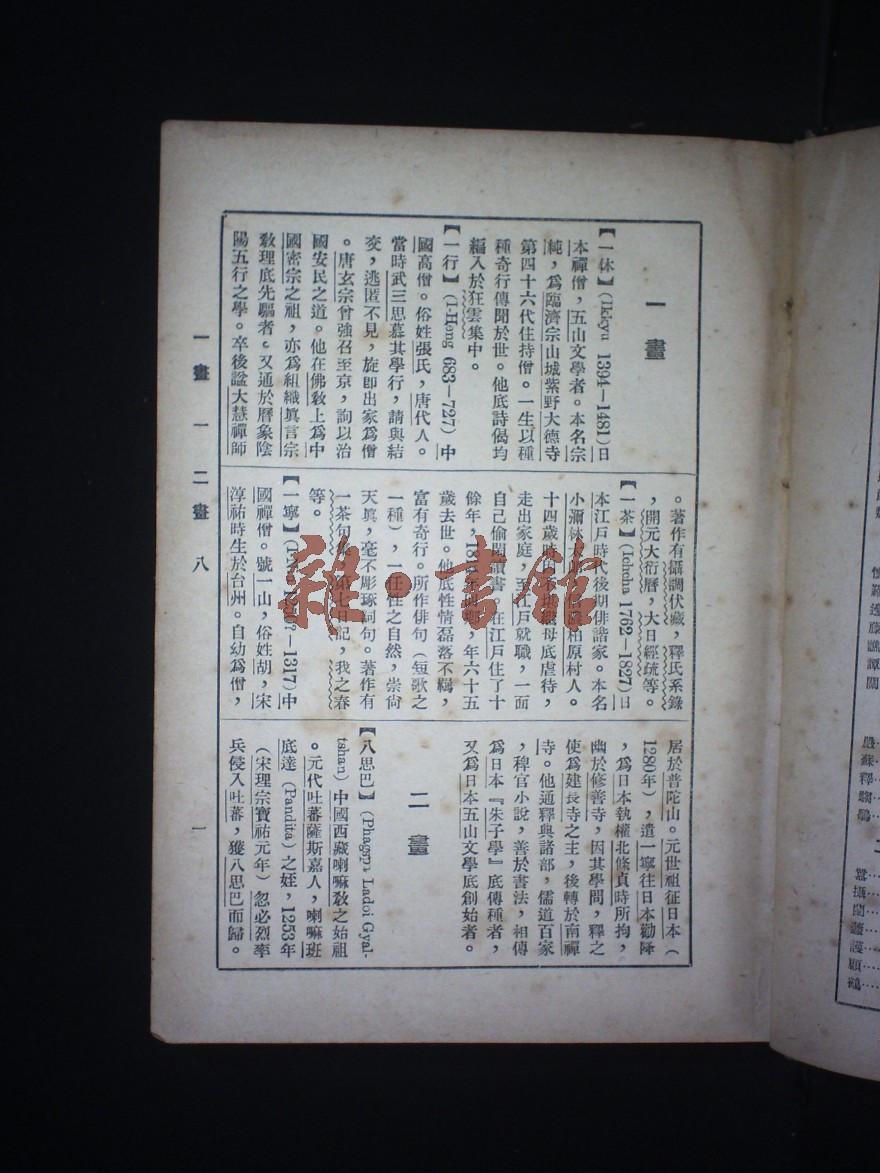 一畫
【一休】(Ikkyu 1394—1481)日
本禪僧，五山文學者。本名宗
純，爲臨濟宗山城紫野大德寺
第四十六代住持僧。一生以種
種奇行傳聞於世。他底詩偈均
編入於狂雲集中。
【一行】(I-Heng 683—727)中
國高僧。俗姓張氏，唐代人。
當時武三思慕其學行，請與結
交，逃匿不見，旋卽出家爲僧
。唐玄宗曾強召至京，詢以治
國安民之道。他在佛敎上爲中
國密宗之祖，亦爲組織眞言宗
敎理底先驅者。又通於曆象陰
陽五行之學。卒後諡大慧禪師
。著作有攝調伏藏，釋氏系錄
，開元大衍曆，大日經疏等。
【一茶】(Ichcha 1762—1827)日
本江戸時代後期俳諧家。本名
小彌林太 柏原村人。
十四歲時 母底虐待，
走出家庭，至江戸就職，一面
自己偷閒讀書，在江戸住了十
餘年， 年六十五
歲去世。他底性情磊落不羈，
富有奇行。所作俳句（短歌之
一種），一任性之自然，崇尙
天眞，毫不彫琢詞句。著作有
一茶句集，第七日記，我之春
等。
【一寧】( ?—1317)中
國禪僧。號一山，俗姓胡，宋
淳祐時生於台州。自幼爲僧，
居於普陀山。元世祖征日本（
1280年），遣一寧往日本勸降
，爲日本執權北條貞時所拘，
幽於修善寺，因其學問，釋之
使爲建長寺之主，後轉於南禪
寺。他通釋典諸部，儒道百家
，稗官小說，善於書法，相傳
爲日本『朱子學』底傳種者，
又爲日本五山文學底創始者。
二畫
【八思巴】(Phagspa Ladoi Gyal-
tshan) 中國西藏喇嘛敎之始祖
。元代吐蕃薩斯嘉人，喇嘛班
底達 (Pandita) 之姪，1253年
（宋理宗寶祐元年）忽必烈率
兵侵入吐蕃，獲八思巴而歸。
一畫 一 二畫 八
一
雜·書館
蘇
釋
攝
護
顧
鶴